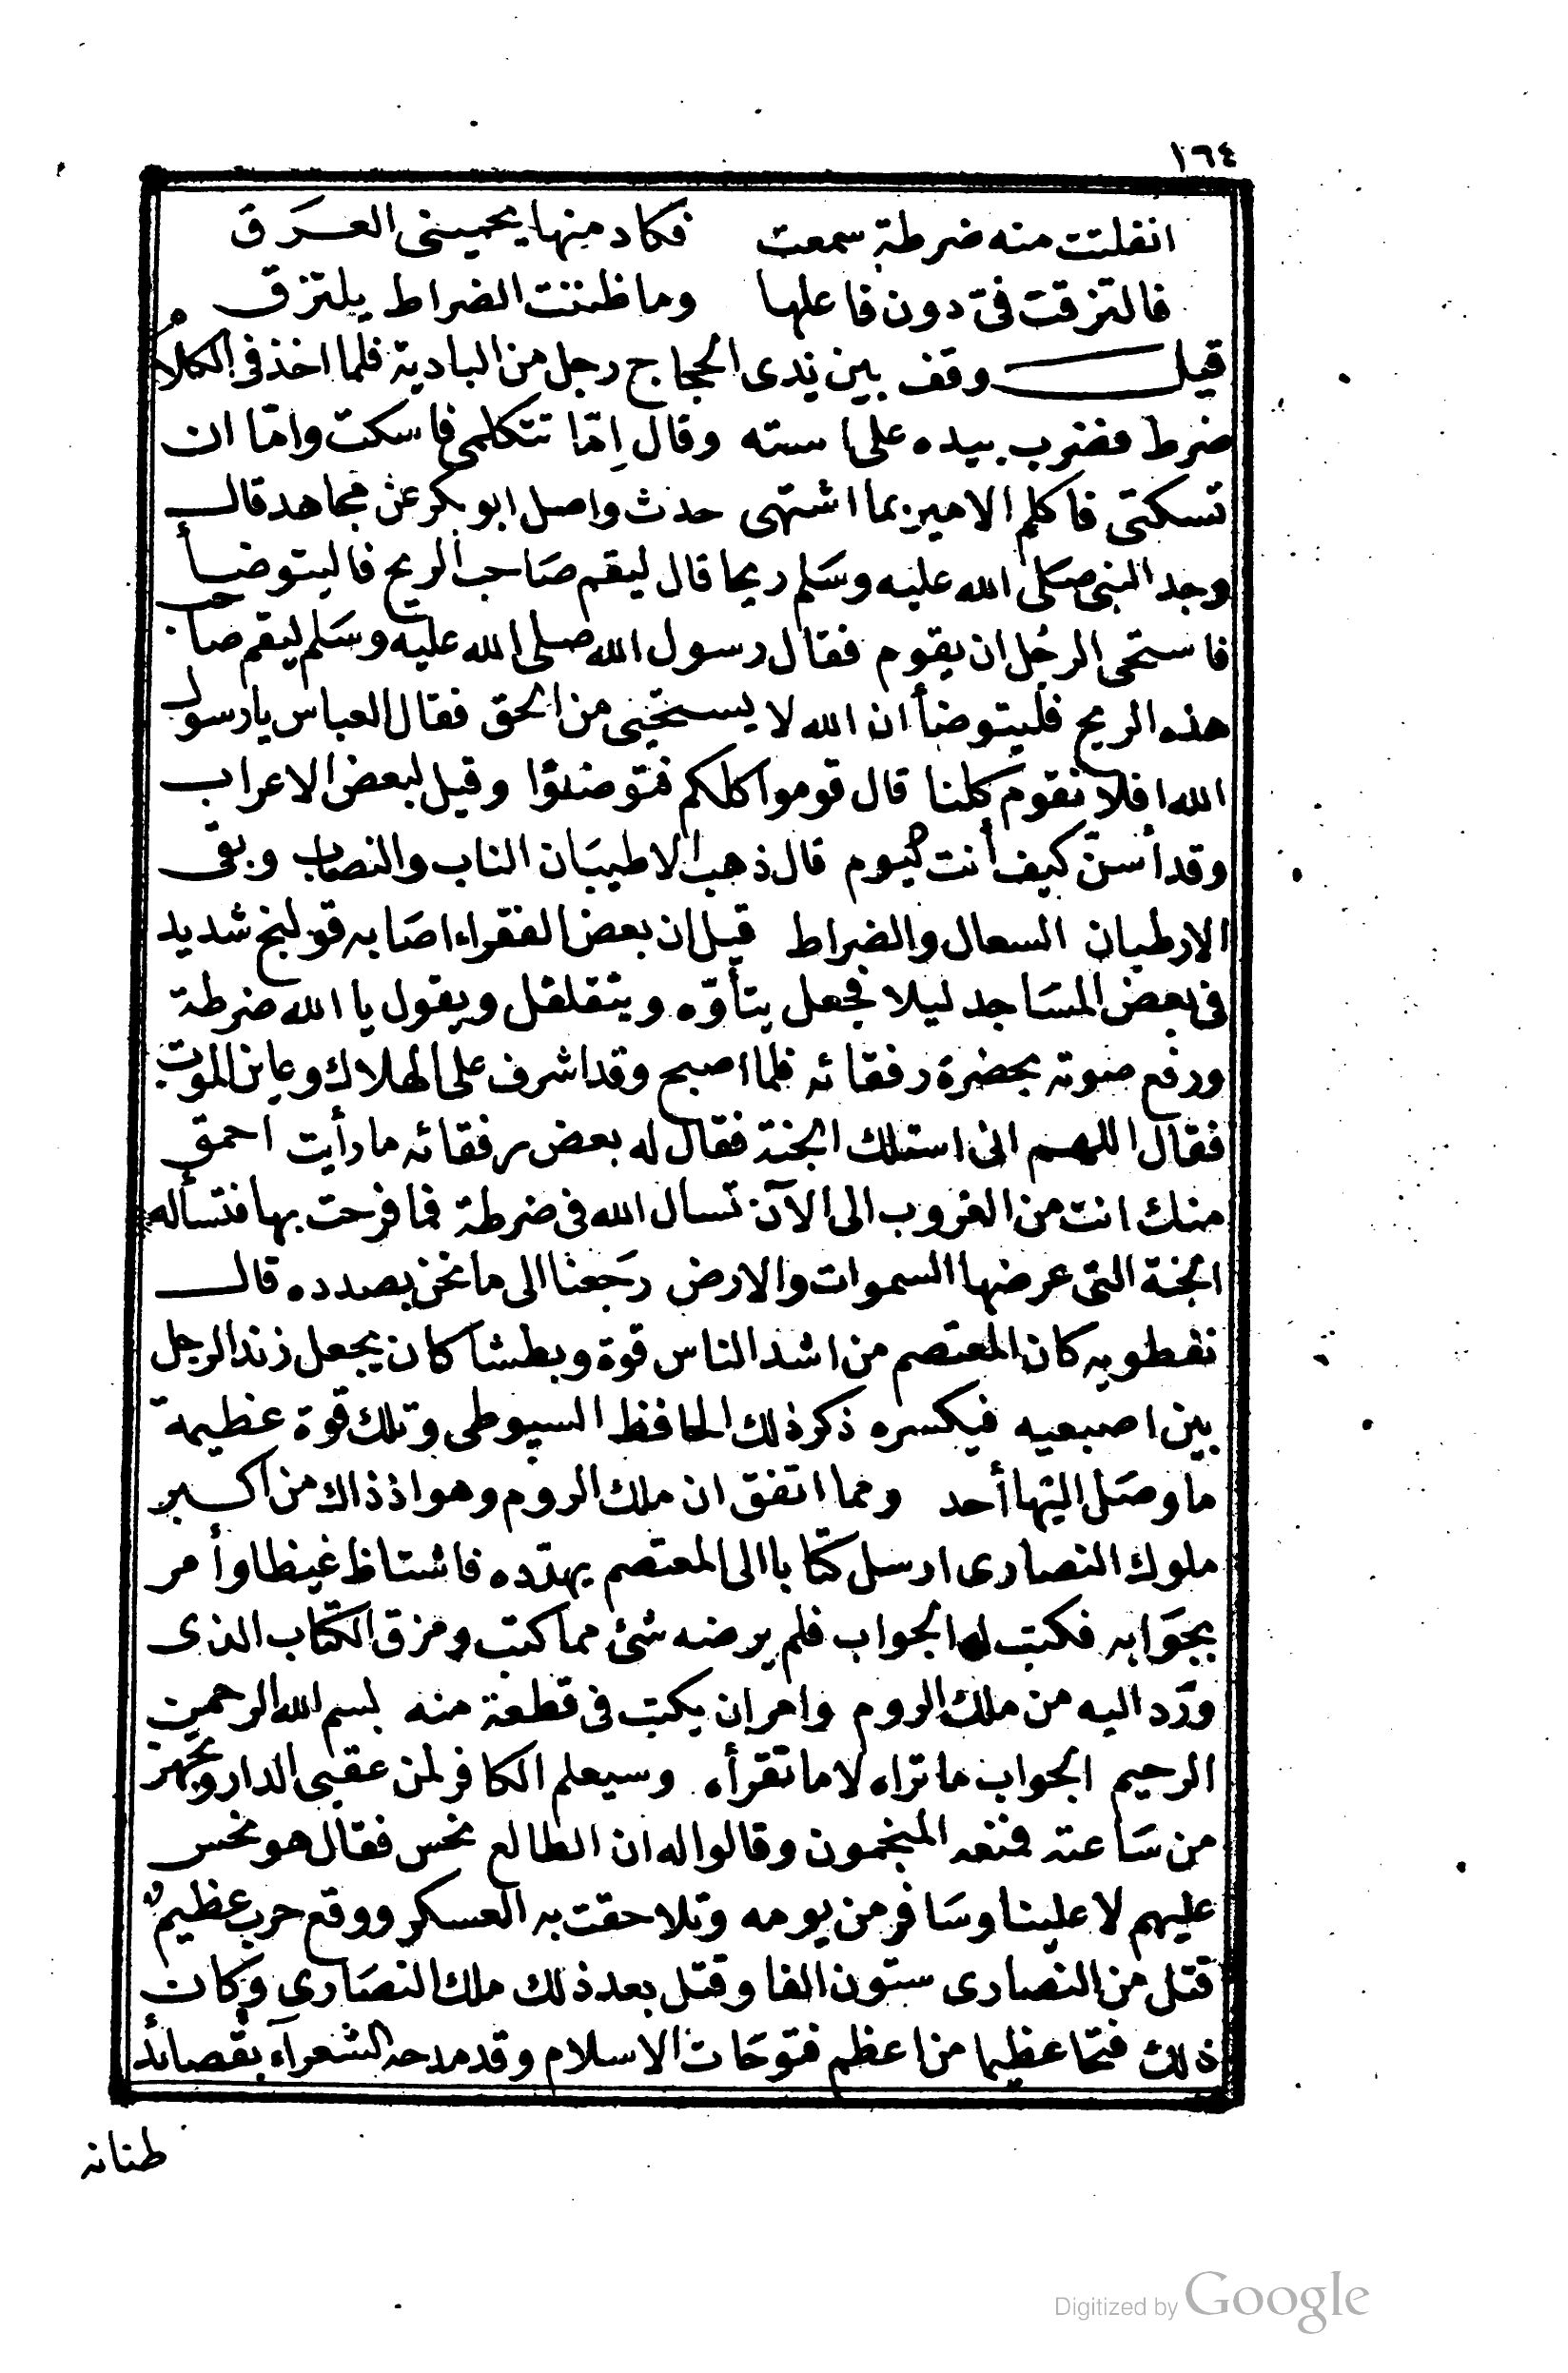 ١٦٤
انفلتت منه ضرطة سمعت فكاد منها يحميني العَرَق
فالتزقت فيّ دون فاعلها وما ظننت الضراط يلتزق
قيل وقف بين يدى الحجاج رجل من البادية فلما اخذ في الكلام
ضرط فضرب بيده على استه وقال اِمّا تتكلمى فاسكت وامّا ان
تسكتى فاكلم الامير بما اشتهى حدث واصل ابو بكر عن مجاهد قال
وجد النبى صَلى الله عليه وسَلم ريحا قال ليقم صَاحب الريح فاليتوضأ
فاستحى الرجُل ان يقوم فقال رسول الله صلى الله عليه وسَلم ليقم صاحب
هذه الريح فليتوضأ ان الله لا يستحيى من الحق فقال العباس يا رسول
الله افلا نقوم كلنا قال قوموا كلكم فتوضئوا وقيل لبعض الاعراب
وقد أسنّ كيف أنت اليوم قال ذهب الاطيبَان الناب والنصاب وبقى
الارطبان السعال والضراط قيل ان بعض الفقراء اصَابه قولنج شديد
في بعض المسَاجد ليلا فجعل يتأوّه ويتقلقل ويقول يا الله ضرطة
ورفع صوته بحضرة رفقائه فلما اصبح وقد اشرف على الهلاك وعاين الموت
فقال اللهم انى اسئلك الجنة فقال له بعض رفقائه ما رأيت احمق
منك انت من الغروب الى الآن تسال الله في ضرطة فما فرحت بها فتسأله
الجنة التى عرضها السموات والارض رَجَعنا الى ما نحن بصدده قال
نفطويه كان المعتصم من اشد الناس قوة وبطشا كان يجعل زند الرجل
بين اصبعيه فيكسره ذكر ذلك الحافظ السيوطى وتلك قوة عظيمة
ما وصَل اليها أحد ومما اتفق ان ملك الروم وهو اذ ذاك من اكبر
ملوك النصارى ارسل كتابا الى المعتصم يهدّده فاشتاظ غيظا وأمر
بجوَابه فكتب له الجواب فلم يرضه شئ مما كتب ومزق الكتاب الذى
ورَد اليه من ملك الروم وامر ان يكتب في قطعة منه بسم الله الرحمن
الرحيم الجواب ما تراه لا ما تقرأه وسيعلم الكافر لمن عقبى الدار وتجهز
من سَاعته فمنعه المنجمون وقالوا له ان الطالع نحس فقال هو نحس
عليهم لا علينا وسَافر من يومه وتلاحقت به العسكر ووقع حرب عظيم
قتل من النصارى ستون الفا وقتل بعد ذلك ملك النصَارى وكان
ذلك فتحا عظيما من اعظم فتوحَات الاسلام وقد مدحه الشعرآء بقصائد
طنانه
Digitized by Google